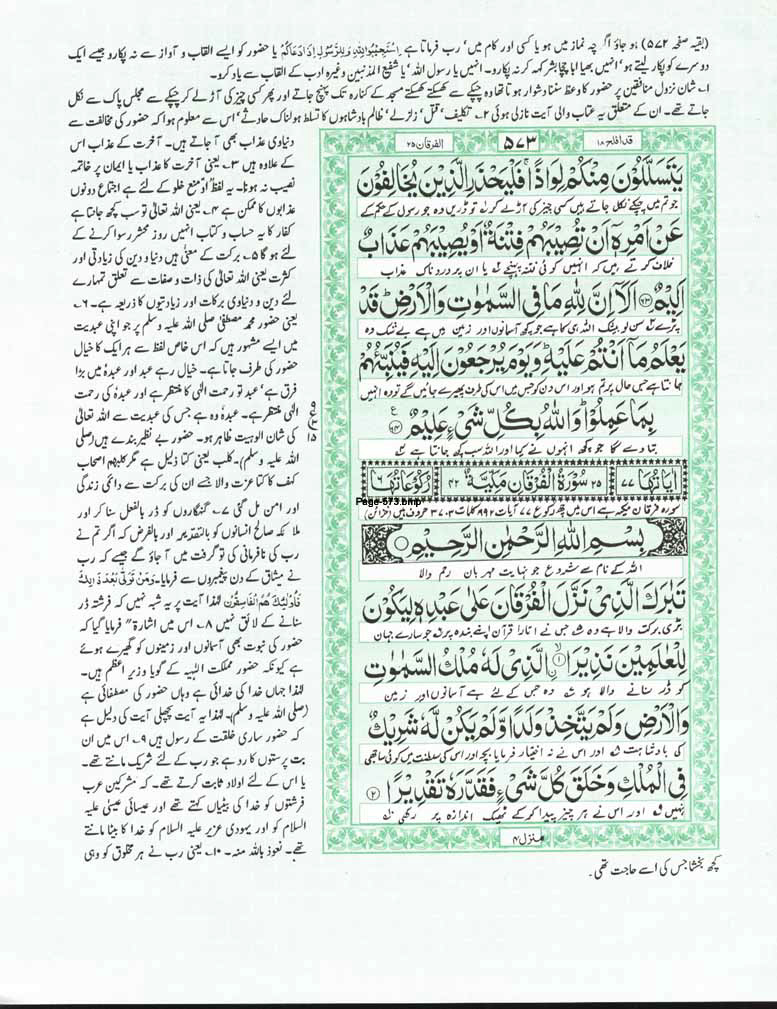 (بقیہ صفحہ ۵۷۲) ہو جاؤ اگرچہ نماز میں ہو یا کسی اور کام میں' رب فرماتا ہے اِسْتَجِیْبُوْا لِلّٰہِ وَ لِلرَّسُوْلِ اِذَا دَعَاکُمْ یا حضور کو ایسے القاب و آواز سے نہ پکارو جیسے ایک
دوسرے کو پکار لیتے ہو' انہیں بھیا ابا چچا بشر کہہ کر نہ پکارو۔ انہیں یا رسول اللہ' یا شفیع المذنبین وغیرہ ادب کے القاب سے یاد کرو۔
۱۔ شان نزول منافقین پر حضور کا وعظ سننا دشوار ہوتا تھا وہ چپکے سے کھسکتے کھسکتے مسجد کے کنارہ تک پہنچ جاتے اور پھر کسی چیز کی آڑ لے کر چپکے سے مجلس پاک سے نکل
جاتے تھے۔ ان کے متعلق یہ عتاب والی آیت نازل ہوئی ۲۔ تکلیف' قتل' زلزلے' ظالم بادشاہوں کا تسلط ہولناک حادثے' اس سے معلوم ہوا کہ حضور کی مخالفت سے
قد افلح ۱۸
۵۷۳
الفرقان ۲۵
یَتَسَلَّلُوْنَ مِنْكُمْ لِوَاذًا فَلْیَحْذَرِ الَّذِیْنَ یُخَالِفُوْنَ
جو تم میں چپکے نکل جاتے ہیں کسی چیز کی آڑ لے کر تو ڈریں وہ جو رسول کے حکم کے
عَنْ اَمْرِهٖۤ اَنْ تُصِیْبَهُمْ فِتْنَةٌ اَوْ یُصِیْبَهُمْ عَذَابٌ
خلاف کرتے ہیں کہ انہیں کوئی فتنہ پہنچے یا ان پر دردناک عذاب
اَلِیْمٌ ﴿۶۳﴾ اَلَاۤ اِنَّ لِلّٰهِ مَا فِی السَّمٰوٰتِ وَ الْاَرْضِ قَدْ
پڑے سن لو بیشک اللہ ہی کا ہے جو کچھ آسمانوں اور زمین میں ہے بے شک وہ
یَعْلَمُ مَاۤ اَنْتُمْ عَلَیْهِ وَ یَوْمَ یُرْجَعُوْنَ اِلَیْهِ فَیُنَبِّئُهُمْ
جانتا ہے جس حال پر تم ہو اور اس دن کو جس میں اس کی طرف پھیرے جائیں گے تو وہ انہیں
بِمَا عَمِلُوْا وَ اللّٰهُ بِكُلِّ شَیْءٍ عَلِیْمٌ ﴿۶۴﴾
بتا دے گا جو کچھ انہوں نے کیا اور اللہ سب کچھ جانتا ہے
اٰیَاتُهَا ۷۷ ۲۵ سُوْرَةُ الْفُرْقَانِ مَكِّیَّةٌ ۴۲ رُكُوْعَاتُهَا ۶
Page-573.bmp
سورہ فرقان مکیہ ہے اس میں چھ رکوع ۷۷ آیات ۸۹۲ کلمات ۳۷۰۳ حروف ہیں (خزائن)
بِسْمِ اللّٰهِ الرَّحْمٰنِ الرَّحِیْمِ
اللہ کے نام سے شروع جو نہایت مہربان رحم والا
تَبٰرَكَ الَّذِیْ نَزَّلَ الْفُرْقَانَ عَلٰی عَبْدِهٖ لِیَكُوْنَ
بڑی برکت والا ہے وہ جس نے اتارا قرآن اپنے بندہ پر جو سارے جہان
لِلْعٰلَمِیْنَ نَذِیْرَا ﴿۱﴾ الَّذِیْ لَهٗ مُلْكُ السَّمٰوٰتِ
کو ڈر سنانے والا ہو وہ جس کے لئے ہے آسمانوں اور زمین
وَ الْاَرْضِ وَ لَمْ یَتَّخِذْ وَلَدًا وَّ لَمْ یَكُنْ لَّهٗ شَرِیْكٌ
کی بادشاہت اور اس نے نہ اختیار فرمایا بچہ اور اس کی سلطنت میں کوئی ساجھی
فِی الْمُلْكِ وَ خَلَقَ كُلَّ شَیْءٍ فَقَدَّرَهٗ تَقْدِیْرًا ﴿۲﴾
نہیں اور اس نے ہر چیز پیدا کر کے ٹھیک اندازہ پر رکھی
منزل ۴
ع
۹
۱۵
دنیاوی عذاب بھی آ جاتے ہیں۔ آخرت کے عذاب اس
کے علاوہ ہیں ۳۔ یعنی آخرت کا عذاب یا ایمان پر خاتمہ
نصیب نہ ہونا۔ یہ لفظ اَوْ منع خلو کے لئے ہے اجتماع دونوں
عذابوں کا ممکن ہے ۴۔ یعنی اللہ تعالیٰ تو سب کچھ جانتا ہے
کفار کا یہ حساب و کتاب انہیں روز محشر رسوا کرنے کے
لئے ہو گا ۵۔ برکت کے معنی ہیں دنیا و دین کی زیادتی اور
کثرت یعنی اللہ تعالیٰ کی ذات و صفات سے تعلق تمہارے
لئے دین و دنیاوی برکات اور زیادتیوں کا ذریعہ ہے۔ ۶۔
یعنی حضور محمد مصطفیٰ صلی اللہ علیہ وسلم پر جو اپنی عبدیت
میں ایسے مشہور ہیں کہ اس خاص لفظ سے ہر ایک کا خیال
حضور کی طرف جاتا ہے۔ خیال رہے عبد اور عبدہٗ میں بڑا
فرق ہے' عبد تو رحمت الٰہی کا منتظر ہے اور عبدہٗ کی رحمت
الٰہی منتظر ہے۔ عبدہٗ وہ ہے جس کی عبدیت سے اللہ تعالیٰ
کی شان الوہیت ظاہر ہو۔ حضور بے نظیر بندے ہیں (صلی
اللہ علیہ وسلم)۔ کلب یعنی کتا ذلیل ہے مگر کلبہم اصحاب
کہف کا کتا عزت والا جسے ان کی برکت سے دائمی زندگی
اور امن مل گئی ۷۔ گنہگاروں کو ڈر بالفعل سنا کر اور
ملائکہ صالح انسانوں کو بالتقدیر اور بالفرض کہ اگر تم نے
رب کی نافرمانی کی تو گرفت میں آ جاؤ گے جیسے کہ رب
نے میثاق کے دن پیغمبروں سے فرمایا۔ وَمَنْ تَوَلّٰی بَعْدَ ذٰلِكَ
فَاُولٰٓئِكَ هُمُ الْفَاسِقُوْنَ لہٰذا آیت پر یہ شبہ نہیں کہ فرشتہ ڈر
سنانے کے لائق نہیں ۸۔ اس میں اشارۃً فرمایا گیا کہ
حضور کی نبوت بھی آسمانوں اور زمینوں کو گھیرے ہوئے
ہے کیونکہ حضور مملکت الٰہیہ کے گویا وزیر اعظم ہیں۔
لہٰذا جہاں خدا کی خدائی ہے وہاں حضور کی مصطفائی ہے
(صلی اللہ علیہ وسلم)۔ لہٰذا یہ آیت پچھلی آیت کی دلیل ہے
کہ حضور ساری خلقت کے رسول ہیں ۹۔ اس میں ان
بت پرستوں کا رد ہے جو رب کے لئے شریک مانتے تھے۔
یا اس کے لئے اولاد ثابت کرتے تھے۔ کہ مشرکین عرب
فرشتوں کو خدا کی بیٹیاں کہتے تھے اور عیسائی عیسیٰ علیہ
السلام کو اور یہودی عزیر علیہ السلام کو خدا کا بیٹا مانتے
تھے۔ نعوذ باللہ منہ۔ ۱۰۔ یعنی رب نے ہر مخلوق کو وہی
کچھ بخشا جس کی اسے حاجت تھی۔